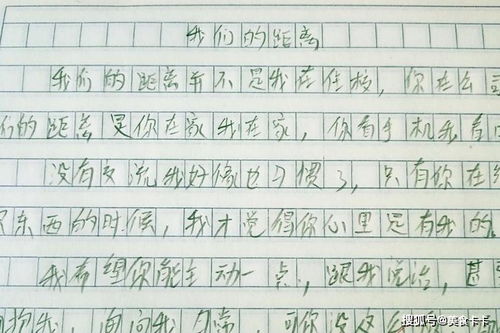 我们的距离
我们的距离并不是我在住校，你在公司
们的距离是你在家我在家，你看手机我看
没有交流我好像也习惯了，只有你在
东西的时候，我才觉得你心里是有我的
我希望你能主动一点，跟我说话，甚
抱我，问问我
搜狐号@美食卡卡